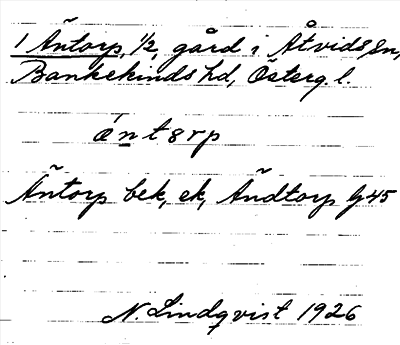 1 Äntorp, 1/2, gård i Åtvids sn,
Bankekinds hd, Österg. l.
ántərp
Äntorp bek, ek, Ändtorp Jb 45
N. Lindqvist 1926